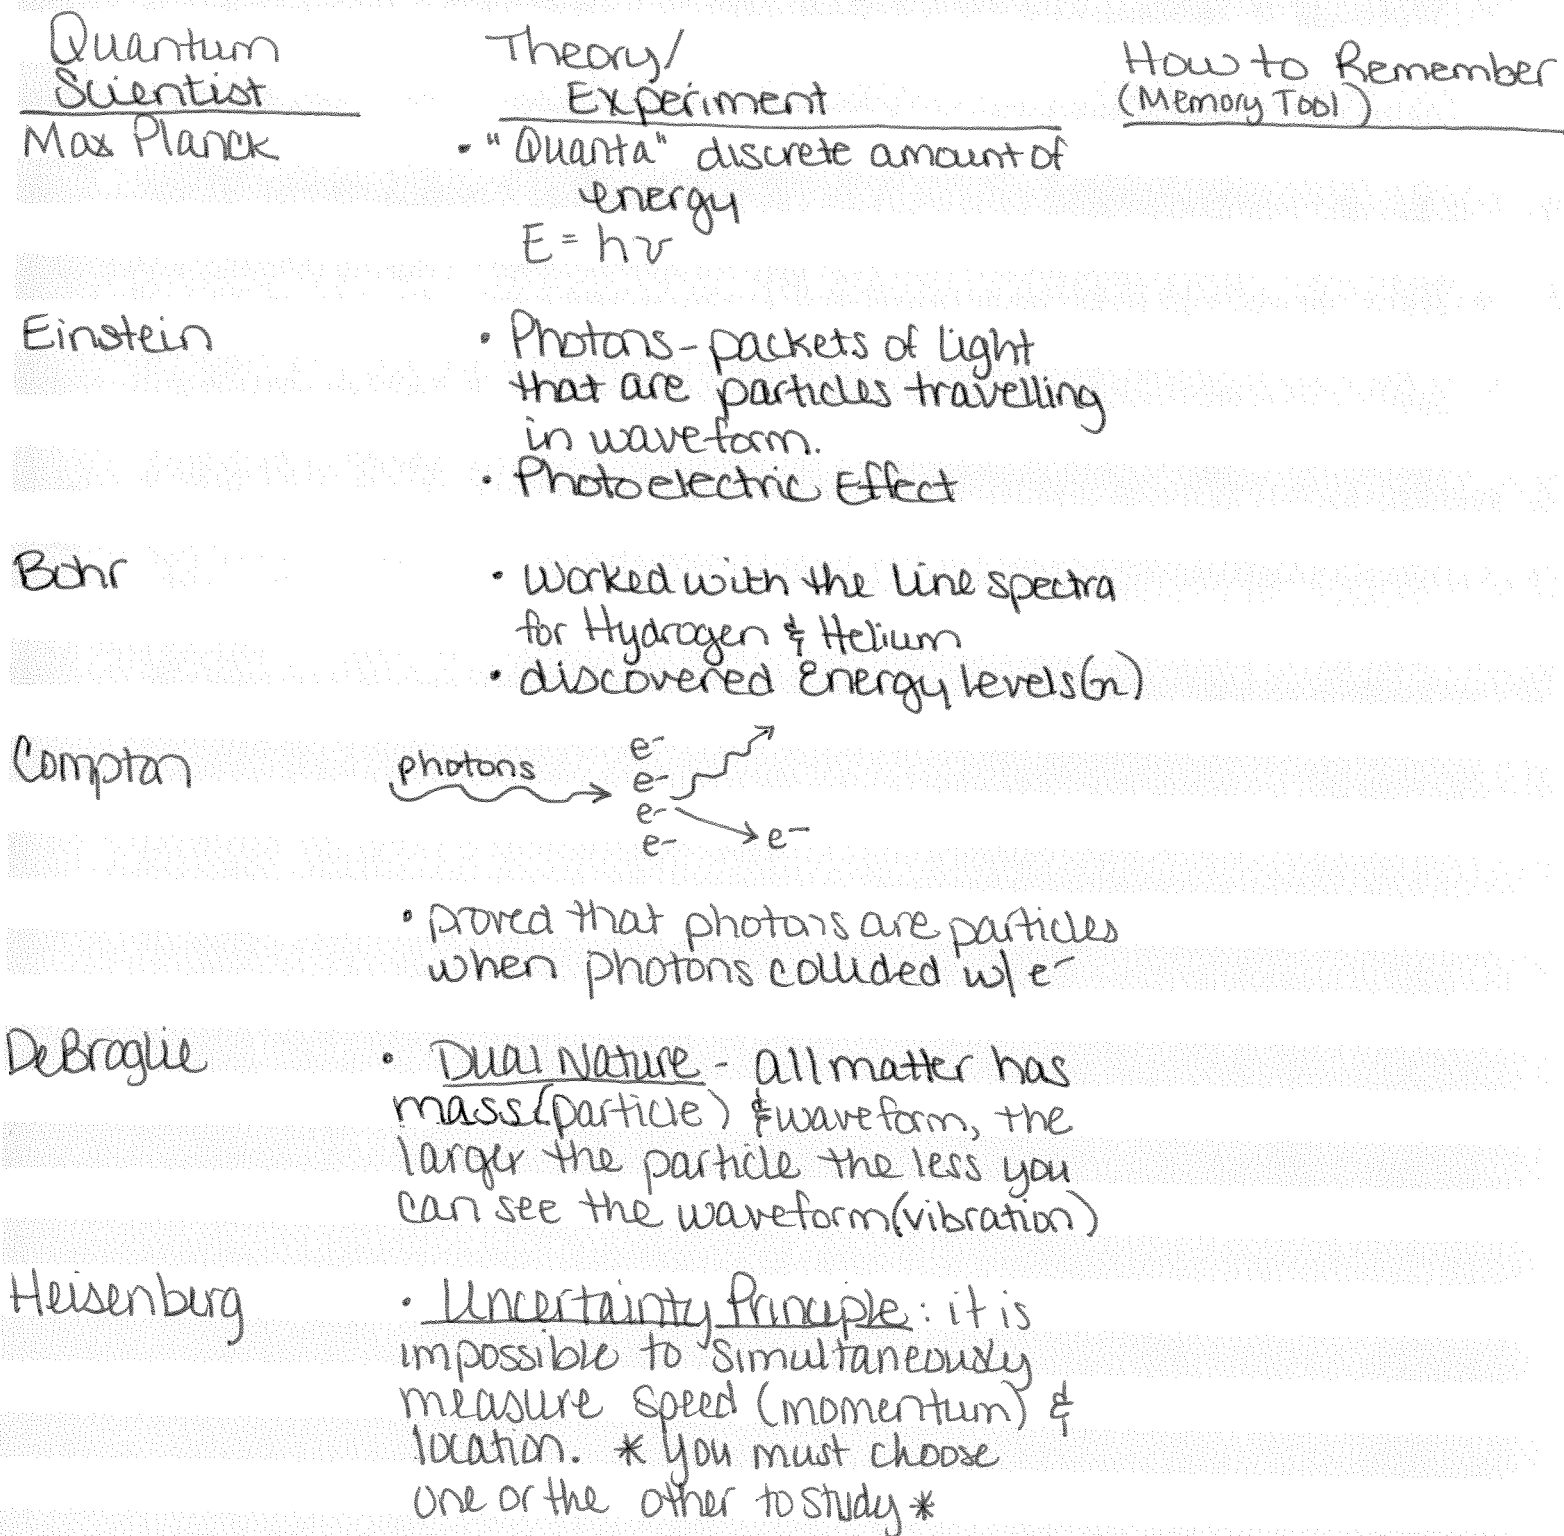 Quantum Scientist
Theory/ Experiment
How to Remember (Memory Tool)
Max Planck
• "Quanta" discrete amount of
energy
E = hν
Einstein
• Photons - packets of light
that are particles travelling
in waveform.
• Photoelectric Effect
Bohr
• Worked with the line spectra
for Hydrogen & Helium
• discovered Energy levels (n)
Compton
photons
e-
e-
e-
e-
e-
• proved that photons are particles
when photons collided w/ e-
DeBroglie
• Dual Nature - all matter has
mass (particle) & waveform, the
larger the particle the less you
can see the waveform (vibration)
Heisenberg
• Uncertainty Principle: it is
impossible to simultaneously
measure speed (momentum) &
location. * you must choose
one or the other to study *